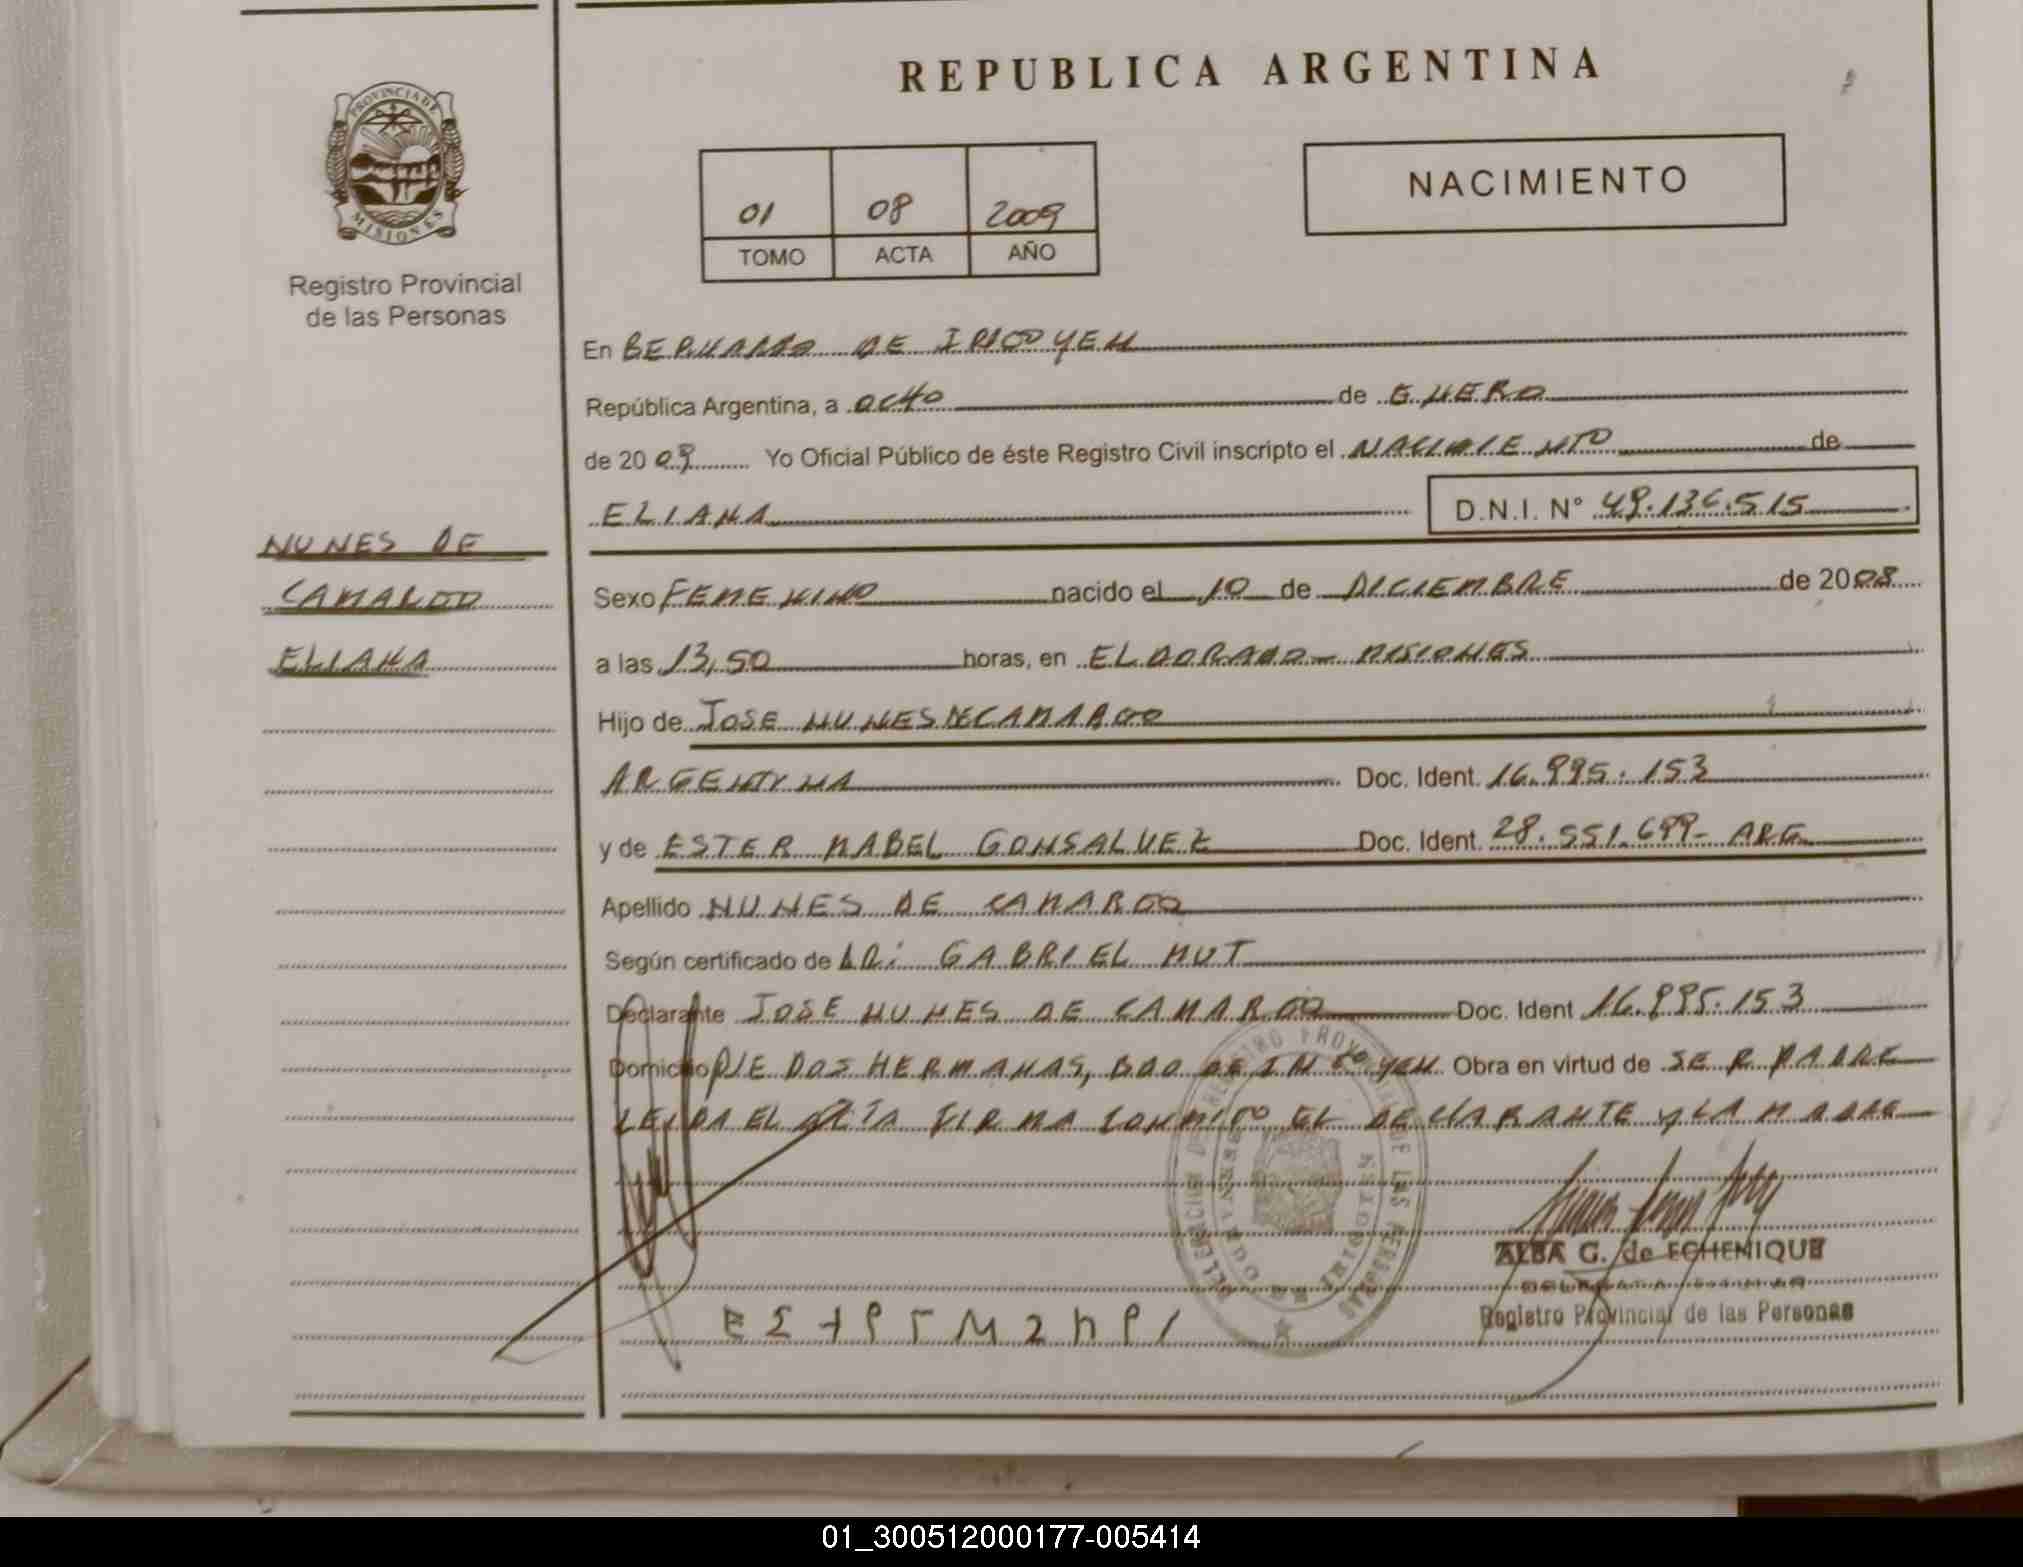 REPUBLICA ARGENTINA
PROVINCIA DE
MISIONES
Registro Provincial
de las Personas
01 08 2009
TOMO ACTA AÑO
NACIMIENTO
En BERNARDO DE IRIGOYEN
República Argentina, a OCHO de ENERO
de 2009 Yo Oficial Público de éste Registro Civil inscripto el NACIMIENTO de
ELIANA D.N.I. N° 49.136.515
NUNES DE
CAMARGO
ELIANA
Sexo FEMENINO nacido el 10 de DICIEMBRE de 2008
a las 13,50 horas, en ELDORADO - MISIONES
Hijo de JOSE NUNES DE CAMARGO
ARGENTINA Doc. Ident. 16.995.153
y de ESTER MABEL GONSALVEZ Doc. Ident. 28.551.699- ARG
Apellido NUNES DE CAMARGO
Según certificado de GABRIEL MUT
Declarante JOSE NUNES DE CAMARGO Doc. Ident 16.995.153
Domicilio PJE DOS HERMANAS, BDO DE IRIGOYEN Obra en virtud de SER PADRE
LEIDA EL ACTA FIRMA CONMIGO EL DECLARANTE Y LA MADRE
ALBA G. de ECHENIQUE
Registro Provincial de las Personas
01_300512000177-005414